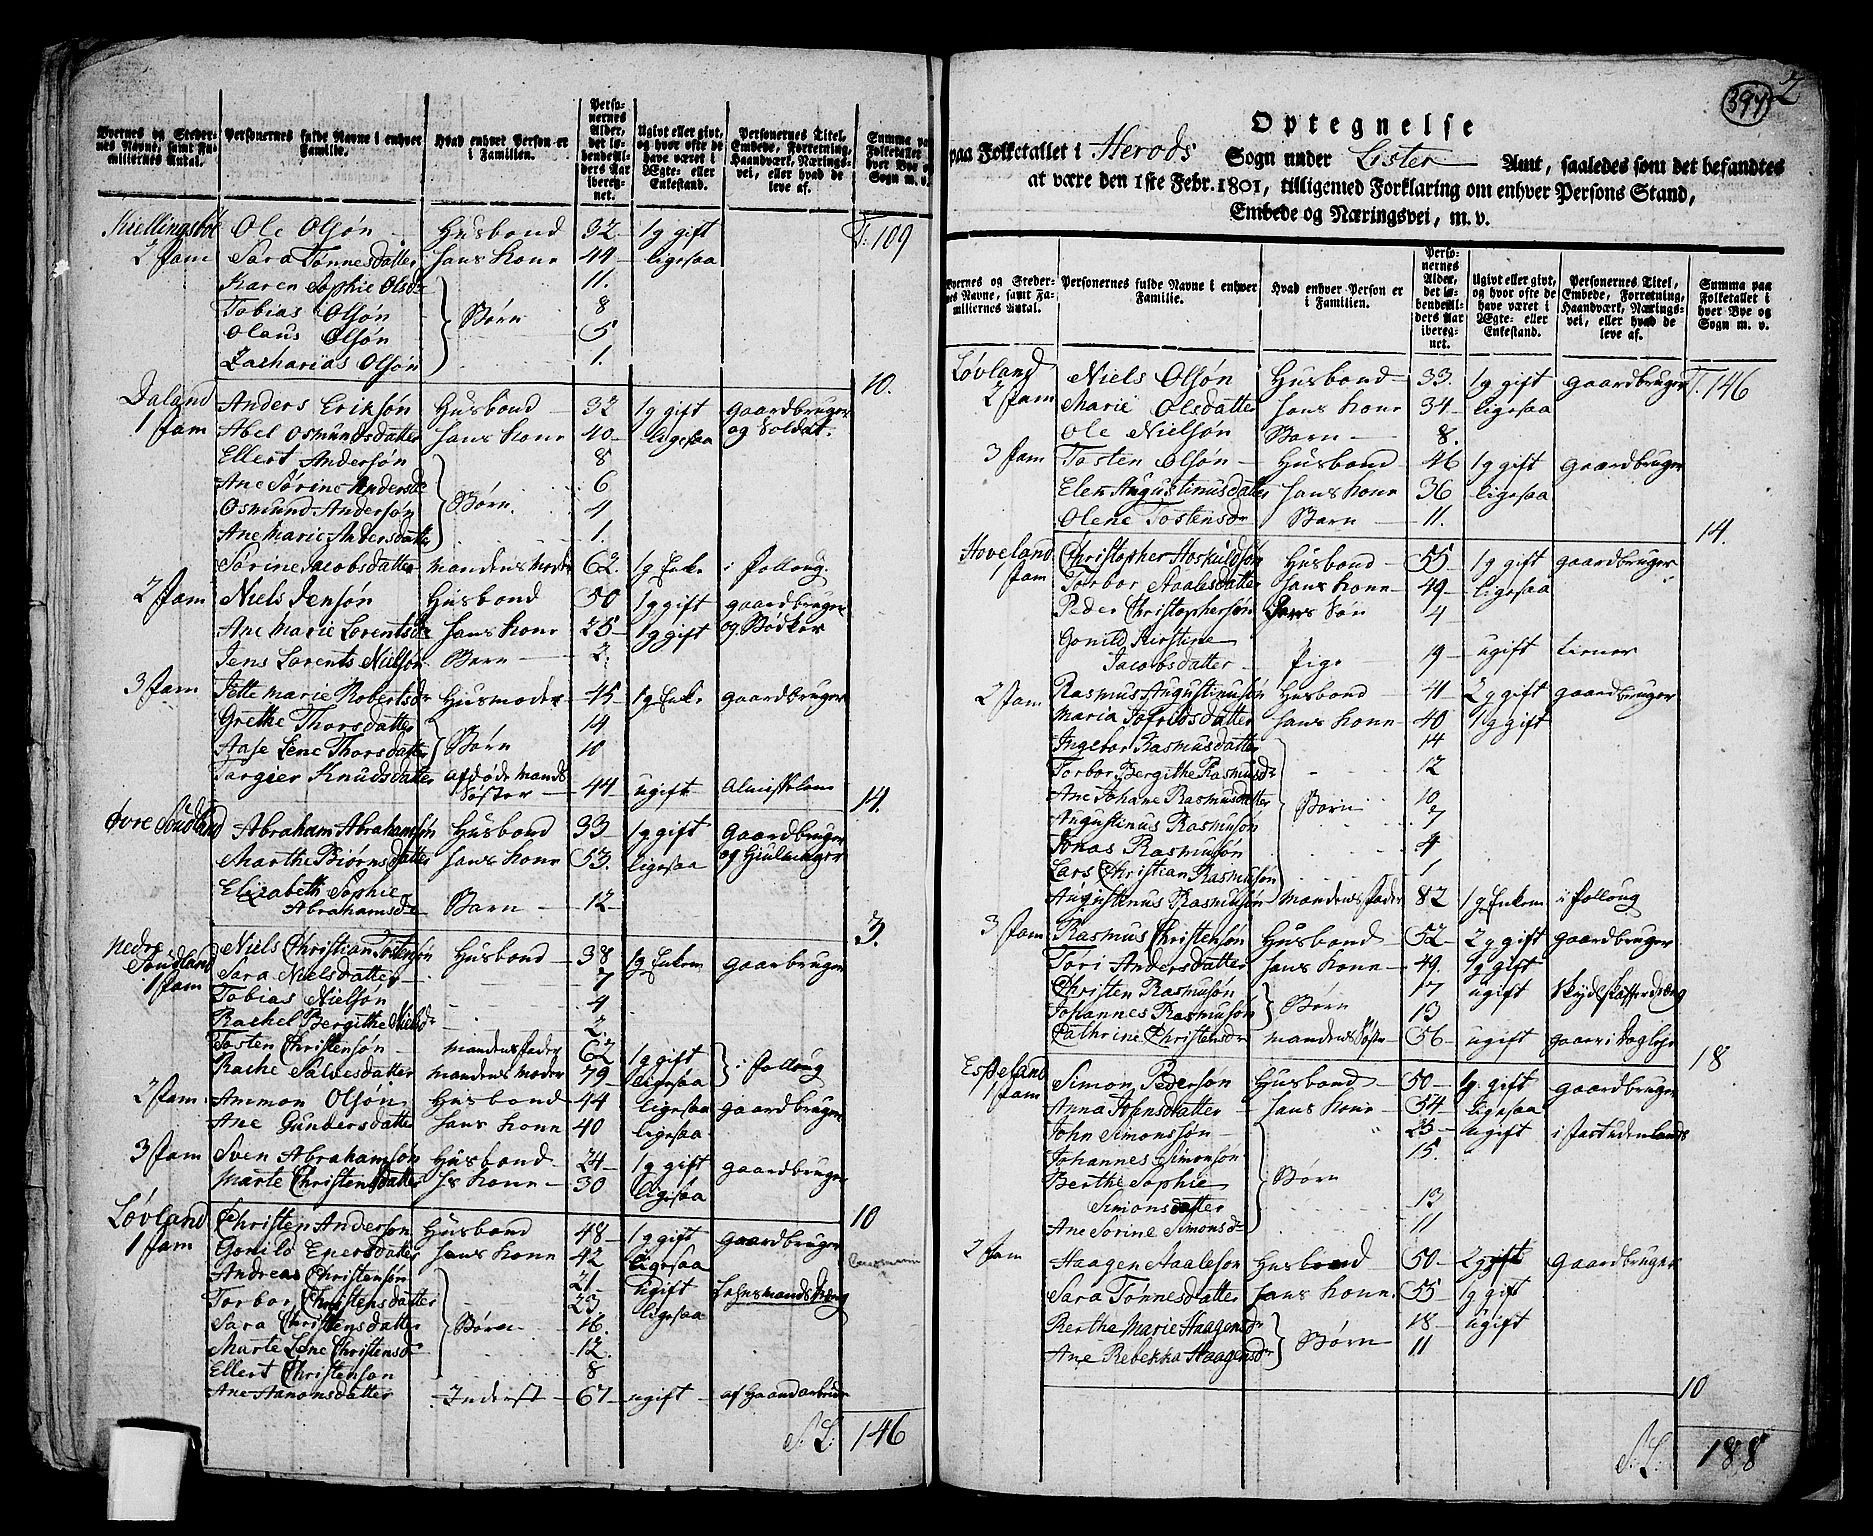 Byernes og Steder-
nes Navne, samt Fa-
miliernes Antal.
Personernes fulde Navne i enhver
Familie.
Hvad enhver Person er
i Familien.
Perso-
nernes
Alder,
det lø-
bende Al-
ders Aar
ibereg-
net.
Ugivt eller givt,
og hvor ofte de
have været i
Ægte- eller
Enkestand.
Personernes Titel,
Embede, Forretning,
Haandværk, Nærings-
vei, eller hvad de
leve af.
Summa paa
Folketallet
hver Bye og
Sogn m. v.
Kiellingsbøl Ole Olsøn Husbond 32 1 g gift T. 109
2 fam Sara Tønnesdatter hans Kone 44 ligesaa
Karen Sophie Olsdr 11.
Tobias Olsøn Børn 8
Olaus Olsøn 5
Zacharias Olsøn 1.
10.
Daland Anders Eriksøn Husbond 32 1 g gift gaardbruger
1 fam Abel Osmundsdatter hans Kone 40 ligesaa og Soldat.
Ellert Andersøn 8
Ane Sørine Andersdr Børn 6
Osmund Andersøn 4
Ane Marie Andersdatter 1.
Sørine Jacobsdatter mandens moder 62. 1 g Enke i folloug.
2 fam Niels Jensøn Husbond 50 1 g gift gaardbruger
Ane Marie Lorentsdr hans Kone 25 1 g gift og Bødker
Jens Lorents Nielsøn Barn 2.
3 fam Jette Marie Robertsdr Husmoder 45 1 g Enke gaardbruger
Grethe Thorsdatter Børn 14
Aase Lene Thorsdatter 10
Targier Knudsdatter afdøde Mands
Søster 44 ugift Almisselem
14.
Øvre Sudland Abraham Abrahamsøn Husbond 33 1 g gift gaardbruger
Marthe Biørnsdatter hans Kone 53. ligesaa og Hiulmager
Elizabeth Sophie
Abrahamsdr Barn 12
3.
Nedre
Sudland Niels Christian Tostensøn Husbond 38 1 g Enkem gaarbruger
1 fam Sara Nielsdatter 7
Tobias Nielsøn 4
Rachel Bergithe Nielsdr 2.
Tosten Christensøn mandens fader 62 1 g gift i folloug
Rache Salvesdatter mandens moder 79 ligesaa
2 fam Ammon Olsøn Husbond 44 ligesaa gaardbruger
Ane Gundersdatter hans Kone 40 ligesaa
3 fam Sven Abrahamsøn Husbond 24 1 g gift gaardbruger
Marte Christensdatter hs Kone 30 ligesaa
10
Løvland Christen Andersøn Husbond 48 1 g gift gaardbruger
1 fam Gonild Enersdatter hans Kone 42 ligesaa
Andreas Christensøn 21 ugift Lehnsmands Dreng
Torbor Christensdatter 23. ligesaa
Sara Christensdatter Børn 16
Marte Lene Christensdr 12.
Ellert Christensøn 8
Ane Aanonsdatter Inderst 67 ugift af Haandarbeide
S. L. 146
394
2
Optegnelse
paa Folketallet i Herods Sogn under Lister Amt, saaledes som det befandtes
at være den 1ste Febr. 1801, tilligemed Forklaring om enhver Persons Stand,
Embede og Næringsvei, m. v.
Byernes og Steder-
nes Navne, samt Fa-
miliernes Antal.
Personernes fulde Navne i enhver
Familie.
Hvad enhver Person er
i Familien.
Perso-
nernes
Alder,
det lø-
bende Al-
ders Aar
ibereg-
net.
Ugivt eller givt,
og hvor ofte de
have været i
Ægte- eller
Enkestand.
Personernes Titel,
Embede, Forretning,
Haandværk, Nærings-
vei, eller hvad de
leve af.
Summa paa
Folketallet i
hver Bye og
Sogn m. v.
Løvland Niels Olsøn Husbond 33. 1 g gift gaardbruger T. 146
2 fam Marie Olsdatter hans Kone 34 ligesaa
Ole Nielsøn Barn 8.
3 fam Tosten Olsøn Husbond 46 1 g gift gaardbruger
Elen Augustinusdatter hans Kone 36 ligesaa
Olene Tostensdr Barn 11.
14.
Hoveland Christopher Hoskuldsøn Husbond 55 1 g gift gaardbruger
1 fam Torbor Aaalsdatter hans Kone 49 ligesaa
Peder Christophersøn hans Søn 4
Gonild Kirstine
Jacobsdatter Pige 19 ugift tiener
2 fam Rasmus Augustinusøn Husbond 41 2 g gift gaardbruger
Maria Tofridsdatter hans Kone 40 1 g gift
Ingebor Rasmusdatter 14
Torbor Bergithe Rasmusdr 12
Ane Johane Rasmusdatter 10
Augustinus Rasmusøn Børn 7
Jonas Rasmusøn 4
Lars Christian Rasmusøn 1
Augustinus Rasmusøn mandens fader 82 1 g Enkem i folloug
3 fam Rasmus Christensøn Husbond 52 2 g gift gaardbruger
Tori Andersdatter hans Kone 49. 1 g gift
Christen Rasmusøn Børn 17 ugift Skydsskafferdreng
Johannes Rasmusøn 13
Cathrine Christensdr mandens Søster 56 ugift gaar i Dagleje
18
Espeland Simon Pedersøn Husbond 50 1 g. gift gaardbruger
1 fam Anna Johnsdatter hans Kone 54 ligesaa
John Simonsøn 25 ugift
Johannes Simonsøn Børn 15.
Berthe Sophie
Simonsdatter 13
Ane Sorine Simonsdr 11
2 fam Haagen Aaalesøn Husbond 50 2 g gift gaardbruger
Sara Tønnesdatter hans Kone. 55 1 g gift
Berthe Marie Haagensdr Børn 18 ugift
Ane Rebekka Haagensdr 11
10
S. L. 188